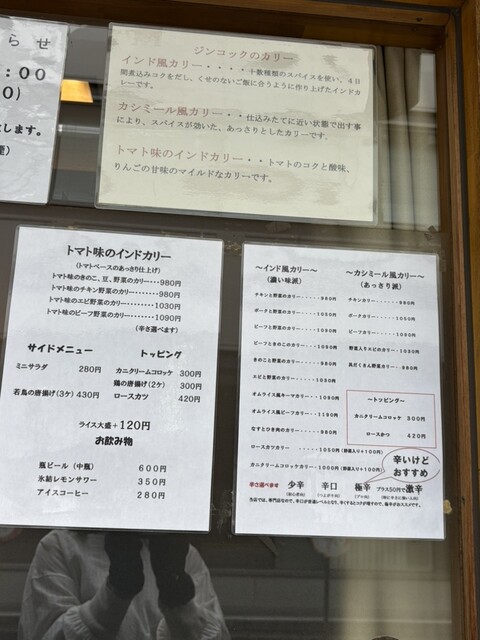 らせ
:00
0)
します。
ジンコックのカリー
インド風カリー・・・・十数種類のスパイスを使い、4日
間煮込みコクをだし、くせのないご飯に合うように作り上げたインドカ
レーです。
カシミール風カリー・・仕込みたてに近い状態で出す事
により、スパイスが効いた、あっさりとしたカリーです。
トマト味のインドカリー・・トマトのコクと酸味、
りんごの甘味のマイルドなカリーです。
トマト味のインドカリー
(トマトベースのあっさり仕上げ)
トマト味のきのこ、豆、野菜のカリー・・・980円
トマト味のチキン野菜のカリー・・・・・・・980円
トマト味のエビ野菜のカリー・・・・・1030円
トマト味のビーフ野菜のカリー・・・・1090円
(辛さ選べます)
サイドメニュー
ミニサラダ 280円
若鳥の唐揚げ(3ケ) 430円
トッピング
カニクリームコロッケ 300円
鶏の唐揚げ(2ケ) 300円
ロースカツ 420円
ライス大盛+120円
お飲み物
瓶ビール(中瓶) 600円
氷結レモンサワー 350円
アイスコーヒー 280円
〜インド風カリー〜
(濃い味派)
チキンと野菜のカリー・・・・980円
ポークと野菜のカリー・・・・1050円
ビーフと野菜のカリー・・・・1090円
ビーフときのこのカリー・・・1090円
きのこと野菜のカリー・・・・980円
エビと野菜のカリー・・・・1030円
オムライス風キーマカリー・・1090円
オムライス風ビーフカリー・・1190円
なすとひき肉のカリー・・・・980円
ロースカツカリー・・・・・1050円(野菜入り+100円)
カニクリームコロッケカリー・1000円(野菜入り+100円)
〜カシミール風カリー〜
(あっさり派)
チキンカリー・・・・・・980円
ポークカリー・・・・・・1050円
ビーフカリー・・・・・・1090円
野菜入りエビのカリー・・1030円
具だくさん野菜カリー・・980円
〜トッピング〜
カニクリームコロッケ 300円
ロースかつ 420円
辛いけど
おすすめ
辛さ選べます 少辛 辛口 極辛 プラス50円で激辛
(初心者向) (つよがり向) (プロ向)